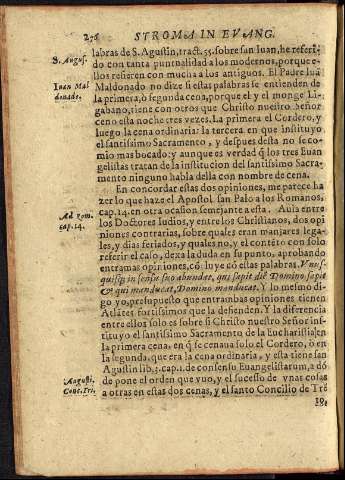 276 STROMA IN EVANG.
labras de S. Agustin, tract. 55. sobre san Iuan, he referi-
S. Agust.
do con tanta puntualidad a los modernos, porque e-
llos refieren con mucha a los antiguos. El Padre Iuã
Iuan Mal
donado.
Maldonado no dize si estas palabras se entienden de
la primera, ò segunda cena, porque el y el monge Li-
gabano, tiene con otros que Christo nuestro Señor
ceno esta noche tres vezes. La primera el Cordero, y
luego la cena ordinaria: la tercera en que instituyo
el santissimo Sacramento, y despues desta no se co-
mio mas bocado: y aunque es verdad q̃ los tres Euan
gelistas tratan de la institucion del santissimo Sacra-
mento ninguno habla della con nombre de cena.
En concordar estas dos opiniones, me parece ha
zer lo que haze el Apostol san Palo a los Romanos,
Ad Rom.
cap. 14.
cap. 14. en otra ocasion semejante a esta. Auia entre
los Doctores Iudios, y entre los Christianos, dos opi
niones contrarias, sobre quales eran manjares lega-
les, y dias feriados, y quales no, y el contẽto con solo
referir el caso, dexa la duda en su punto, aprobando
entramas opiniones, cõcluye cõ estas palabras. Vnus-
quisq; in sensu suo abundet, qui sapit diẽ Domino sapit
& qui manducat, Domino manducat. Y lo mesmo di-
go, presupuesto que entrambas opiniones tienen
Atlãtes fortissimos que la defienden. Y la diferencia
entre ellos solo es sobre si Christo nuestro Señor inst-
ituyo el santissimo Sacramento de la Eucharistia en
la primera cena, en q̃ se cenaua solo el Cordero, ò en
la segunda, que era la cena ordinaria, y esta tiene san
Agustin lib. 3. cap. 1. de consensu Euangelistarum, a dõ
Augusti.
Conc. Tri.
de pone el orden que vuo, y el sucesso de vnas cosas
a otras en estas dos cenas, y el santo Concilio de Trẽ